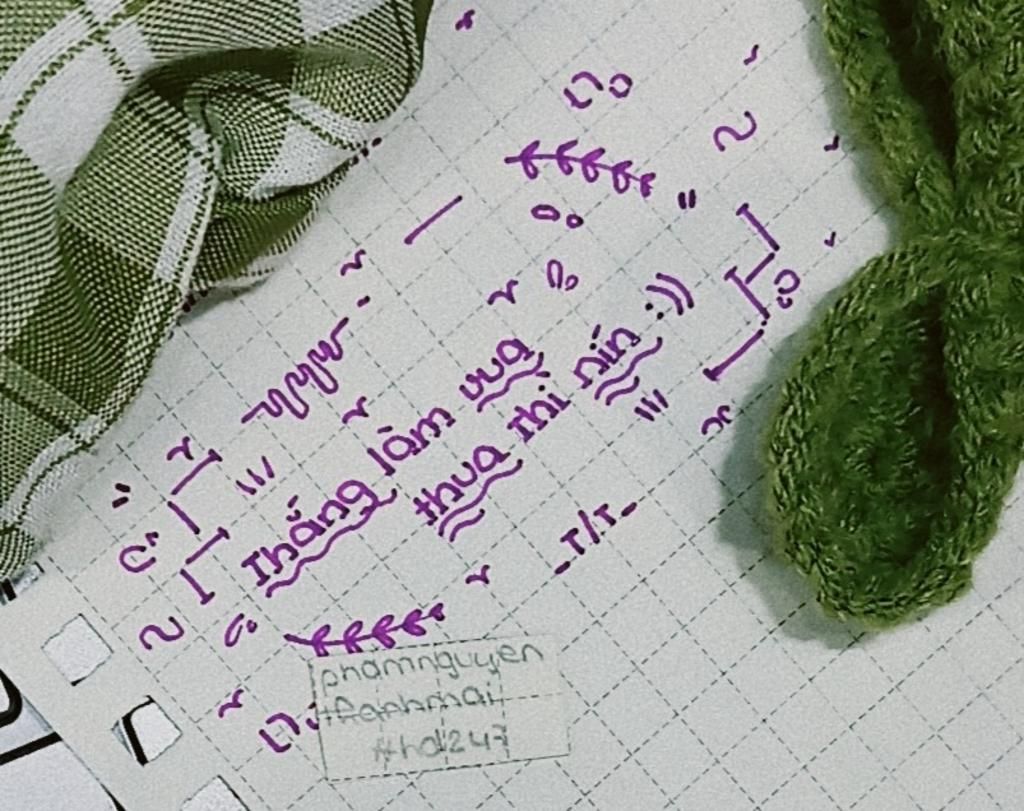 Thắng làm vua
thua thì nín :))
_T/T_
phamnguyen
thanhmai
#hd247